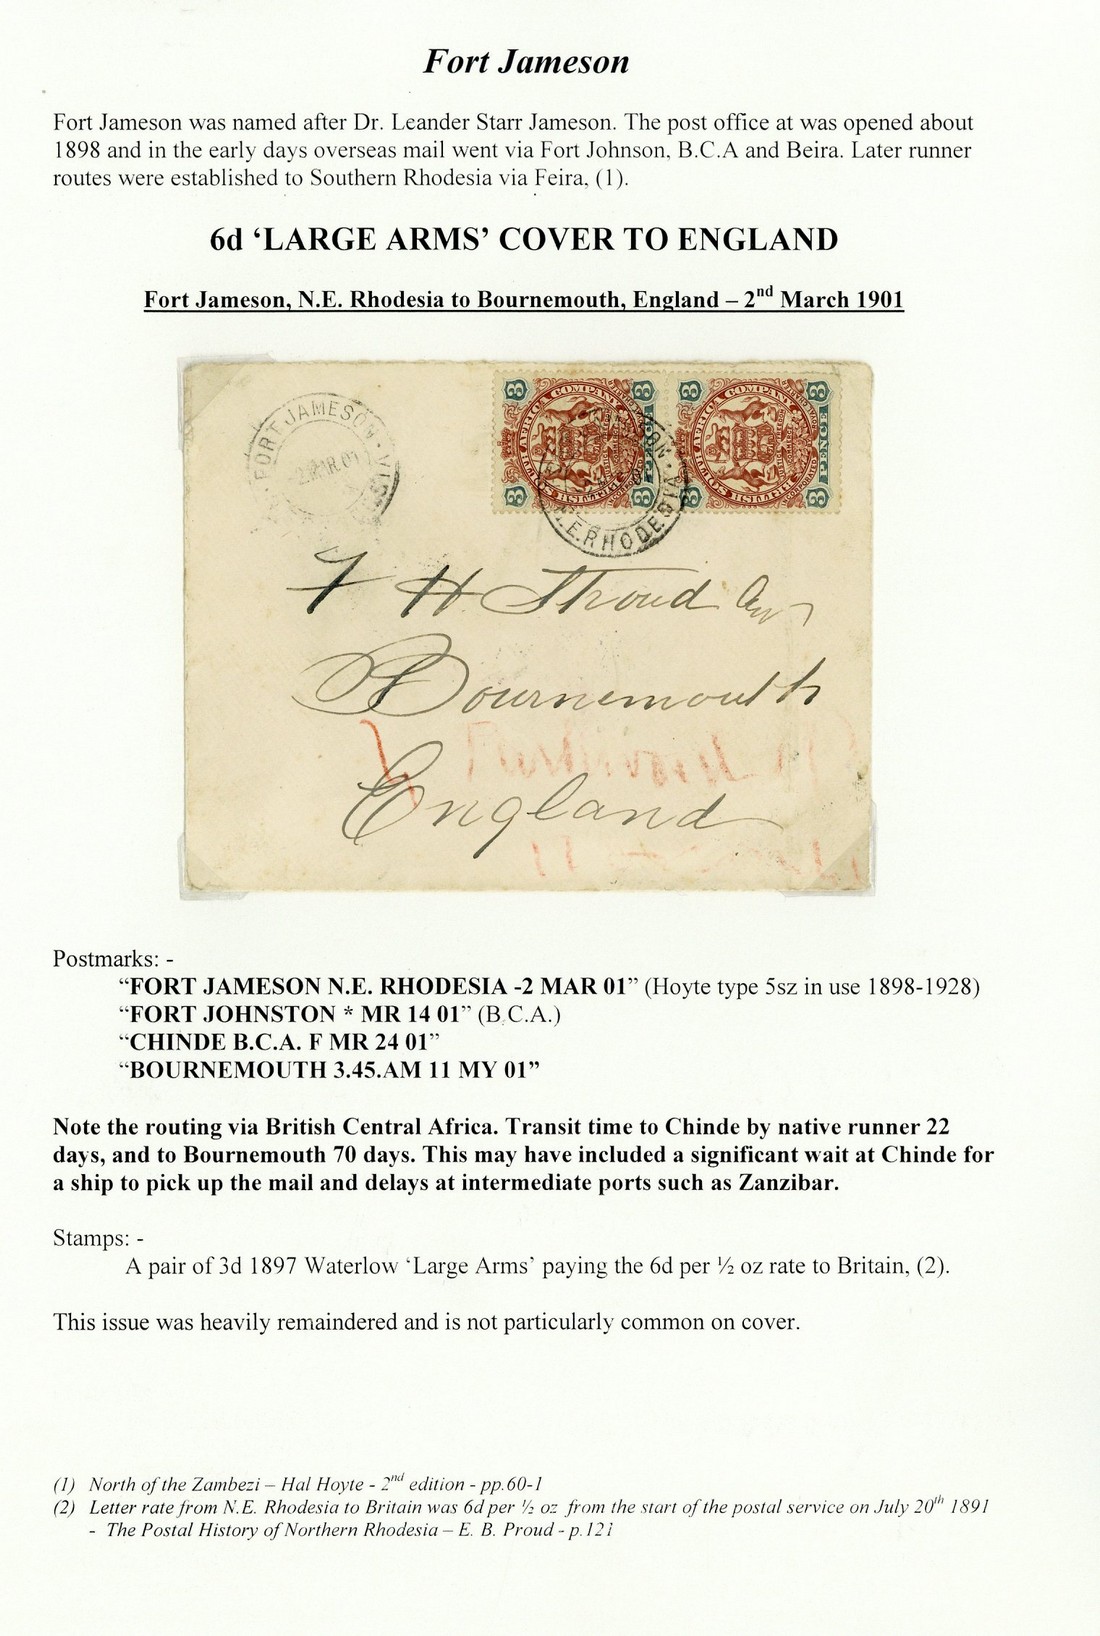 Fort Jameson
Fort Jameson was named after Dr. Leander Starr Jameson. The post office at was opened about
1898 and in the early days overseas mail went via Fort Johnson, B.C.A and Beira. Later runner
routes were established to Southern Rhodesia via Feira, (1).
6d ‘LARGE ARMS’ COVER TO ENGLAND
Fort Jameson, N.E. Rhodesia to Bournemouth, England – 2nd March 1901
FORT JAMESON
2 MAR 01
3 3 3 3
3 3 3 3
BRITISH SOUTH AFRICA COMPANY
BRITISH SOUTH AFRICA COMPANY
INCORPORATED
PENCE
N.E. RHODESIA
H Stroud
Bournemouth
England
Postmarks: -
“FORT JAMESON N.E. RHODESIA -2 MAR 01” (Hoyte type 5sz in use 1898-1928)
“FORT JOHNSTON * MR 14 01” (B.C.A.)
“CHINDE B.C.A. F MR 24 01”
“BOURNEMOUTH 3.45.AM 11 MY 01”
Note the routing via British Central Africa. Transit time to Chinde by native runner 22
days, and to Bournemouth 70 days. This may have included a significant wait at Chinde for
a ship to pick up the mail and delays at intermediate ports such as Zanzibar.
Stamps: -
A pair of 3d 1897 Waterlow ‘Large Arms’ paying the 6d per ½ oz rate to Britain, (2).
This issue was heavily remaindered and is not particularly common on cover.
(1) North of the Zambezi – Hal Hoyte - 2nd edition - pp.60-1
(2) Letter rate from N.E. Rhodesia to Britain was 6d per ½ oz from the start of the postal service on July 20th 1891
- The Postal History of Northern Rhodesia – E. B. Proud - p.121